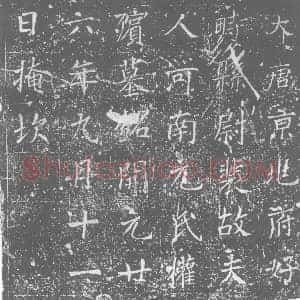 大唐京兆府好
畤縣尉故夫
人河南元氏權
殯墓銘開元廿
六年九月十一
日掩坎